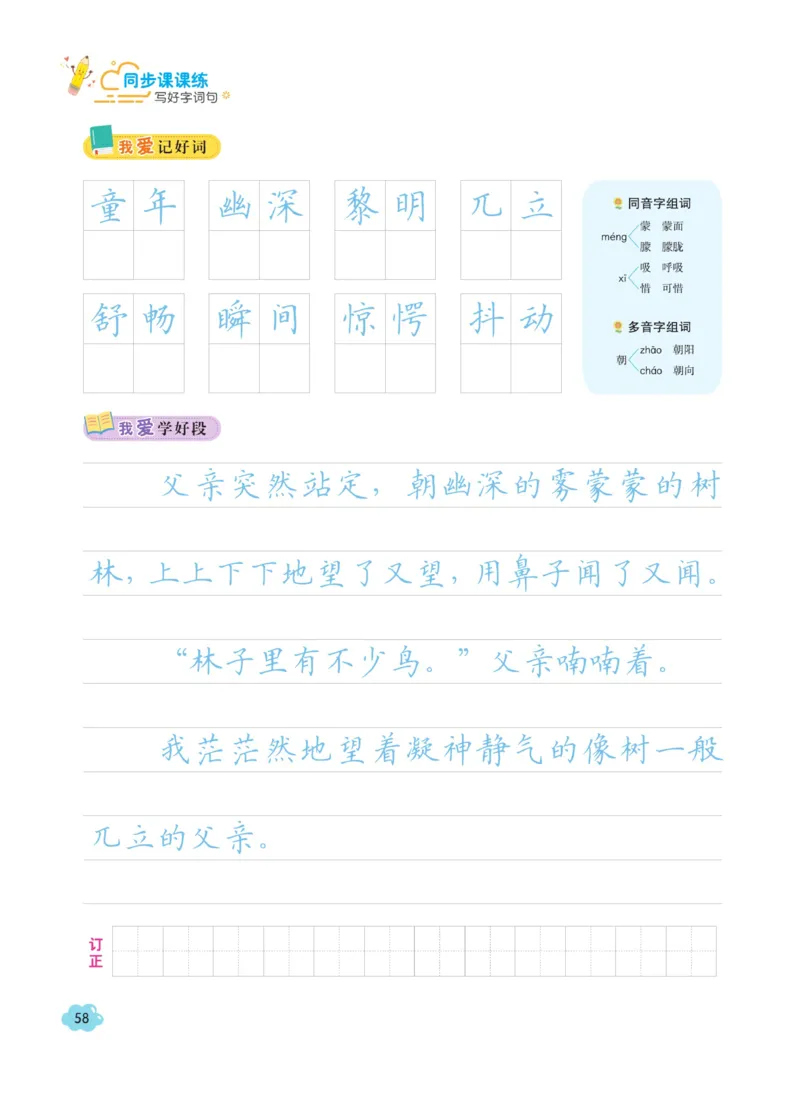 同步课课练
写好字词句
我爱记好词
童年 幽深 黎明 兀立
舒畅 瞬间 惊愕 抖动
同音字组词
méng
蒙 蒙面
朦 朦胧
xī
吸 呼吸
惜 可惜
多音字组词
朝
zhāo 朝阳
cháo 朝向
我爱学好段
父亲突然站定，朝幽深的雾蒙蒙的树
林，上上下下地望了又望，用鼻子闻了又闻。
“林子里有不少鸟。”父亲喃喃着。
我茫茫然地望着凝神静气的像树一般
兀立的父亲。
订正
58